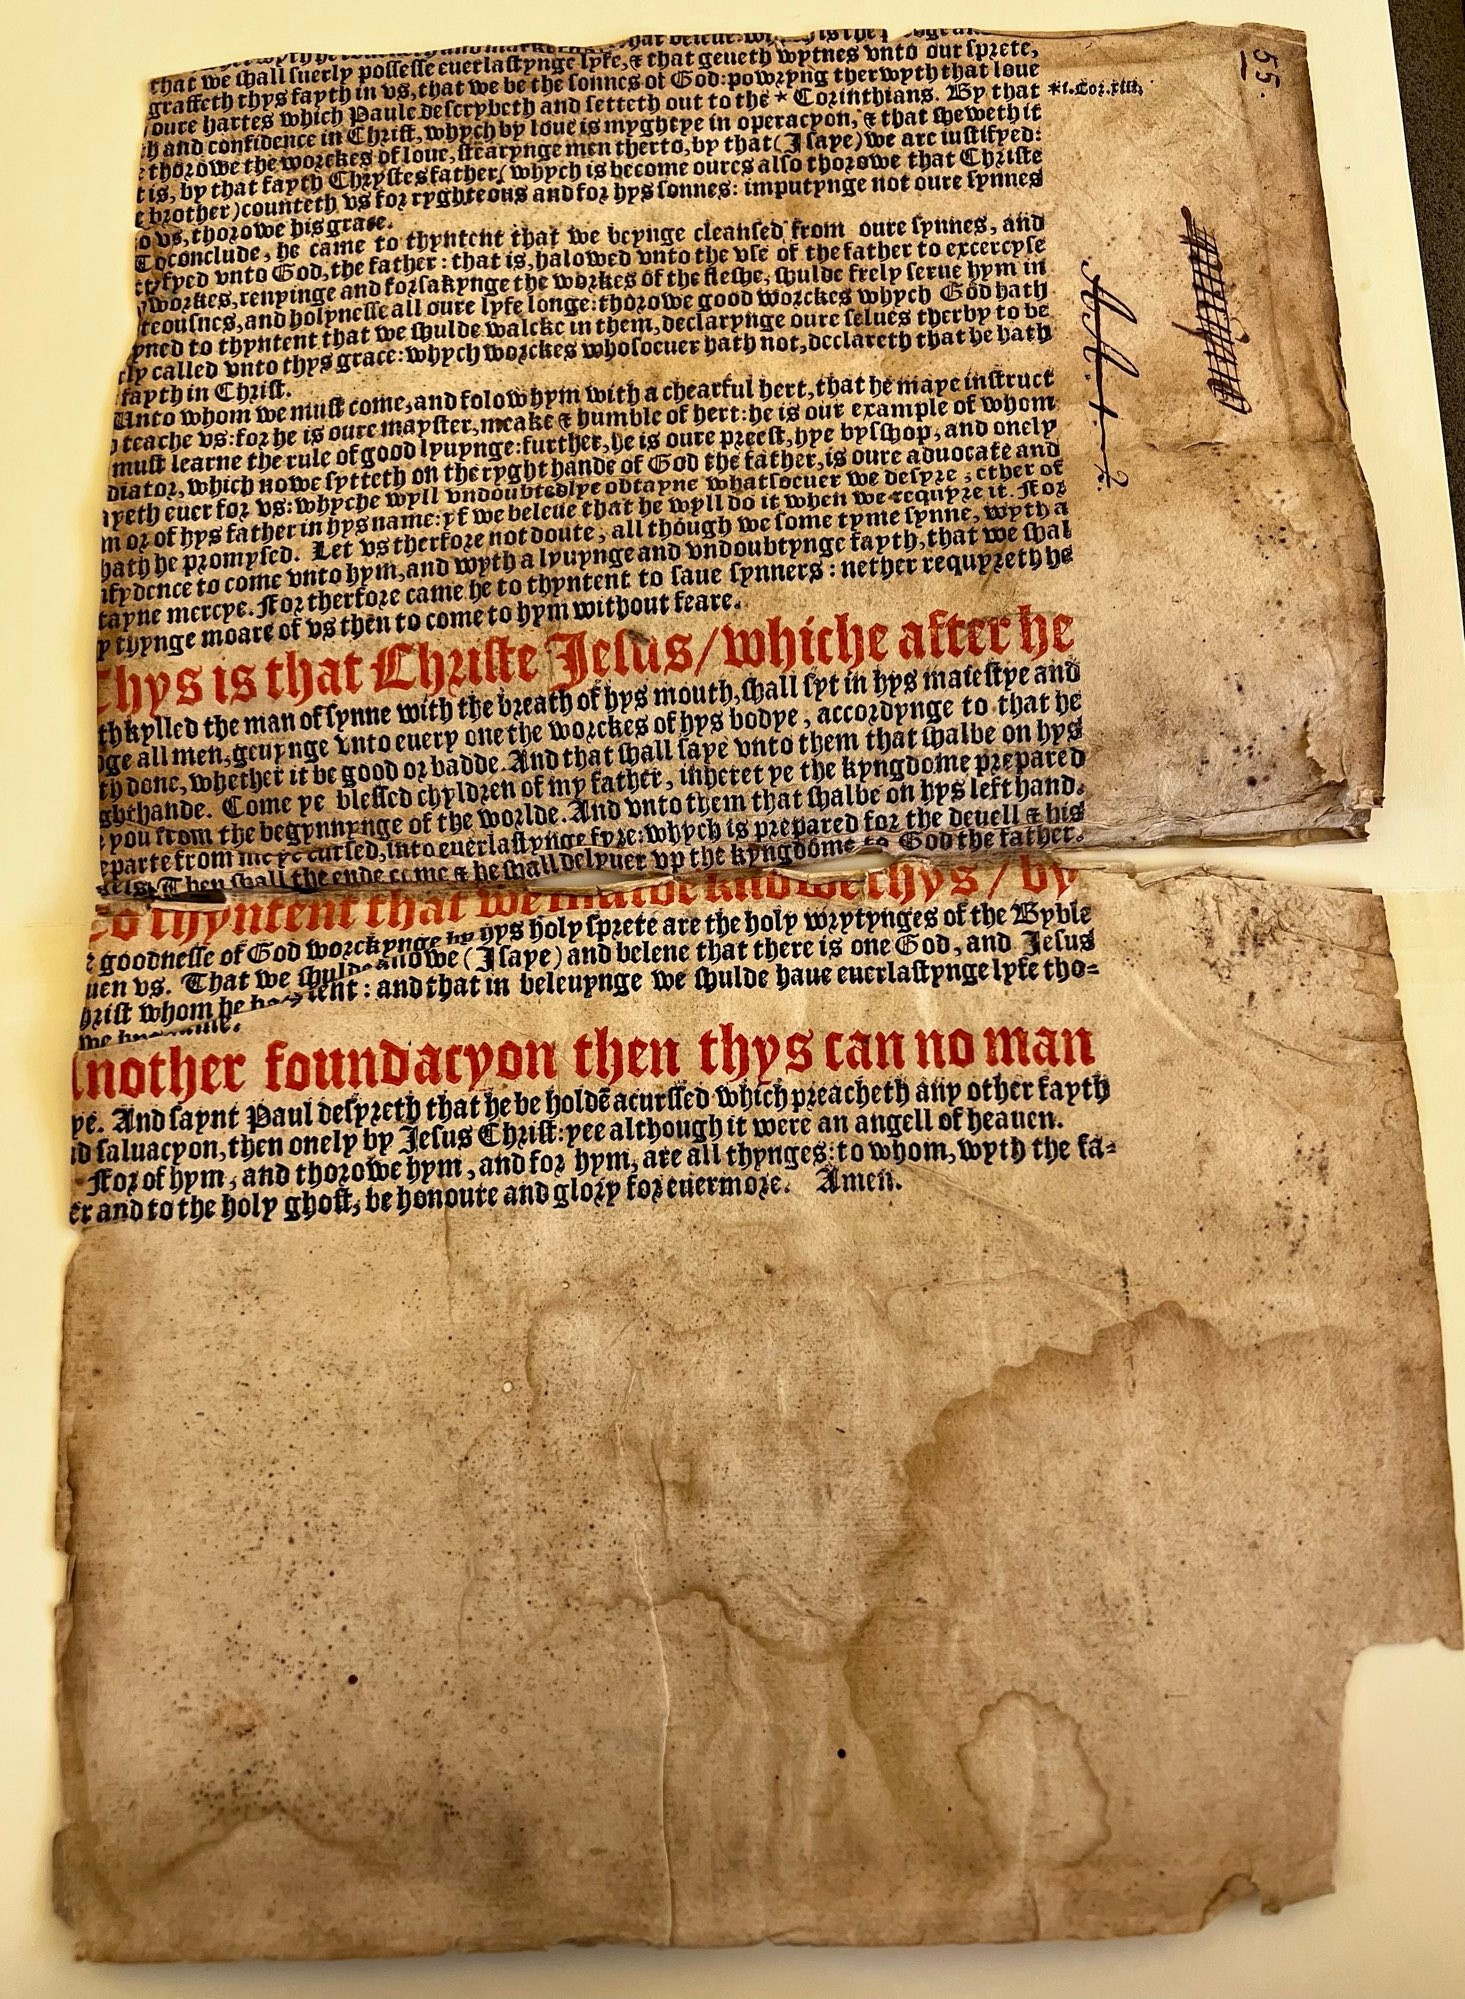 that we shall suerly possesse euerlastynge lyfe, & that geueth wytnes vnto our sprete,
graffeth thys fayth in vs, that we be the sonnes of God: powryng therwyth that loue
oure hartes which Paule descrybeth and setteth out to the * Corinthians. By that
*i.Cor.xiii,
h and confidence in Christ, whych by loue is myghtye in operacyon, & that sheweth it
thorowe the worckes of loue, stearynge men therto, by that (I saye) we are iustifyed:
t is, by that fayth Chrystes father (whych is become oures also thorowe that Christe
e brother) counteth vs for ryghteous and for hys sonnes: imputynge not oure synnes
o vs, thorowe his grace.
To conclude, he came to thyntent that we beynge cleansed from oure synnes, and
ctyfyed vnto God, the father: that is, halowed vnto the vse of the father to excercyse
workes, renyinge and forsakynge the workes of the flesche, shulde frely serue hym in
teousnes, and holynesse all oure lyfe longe: thorowe good worckes whych God hath
yned to thyntent that we shulde walcke in them, declarynge oure selues therby to be
rly called vnto thys grace: whych worckes whosoeuer hath not, declareth that he hath
fayth in Christ.
Unto whom we must come, and folow hym with a chearful hert, that he maye instruct
teache vs: for he is oure mayster, meake & humble of hert: he is our example of whom
must learne the rule of good lyuynge: further, he is oure preest, hye bysshop, and onely
diator, which nowe sytteth on the ryght hande of God the father, is oure aduocate and
ayeth euer for vs: whyche wyll vndoubtedlye obtayne whatsoeuer we desyre, ether of
m or of hys father in hys name: yf we beleue that he wyll do it when we requyre it. For
hath he promysed. Let vs therfore not doute, all though we some tyme synne, wyth a
nfydence to come vnto hym, and wyth a lyuynge and vndoubtynge fayth, that we shal
tayne mercye. For therfore came he to thyntent to saue synners: nether requyreth he
y thynge moare of vs then to come to hym without feare.
Thys is that Christe Jesus/whiche after he
th kylled the man of synne with the breath of hys mouth, shall syt in hys maiestye and
dge all men, geuynge vnto euery one the worckes of hys bodye, accordynge to that he
th done, whether it be good or badde. And that shall saye vnto them that shalbe on hys
ghthande. Come ye blessed chyldren of my father, inheret ye the kyngdome prepared
you from the begynnynge of the worlde. And vnto them that shalbe on hys left hand.
eparte from me ye cursed, into euerlastynge fyre: whych is prepared for the deuell & his
gels. Then shall the ende come & he shall delyuer vp the kyngdome to God the father.
To thyntent that we shulde knowe thys/by
e goodnesse of God worckynge by hys holy sprete are the holy wrytynges of the Byble
uen vs. That we shulde knowe (I saye) and beleue that there is one God, and Jesus
hrist whom he hath sent: and that in beleuynge we shulde haue euerlastynge lyfe tho=
we hys name.
Another foundacyon then thys can no man
ye. And saynt Paul desyreth that he be holdē acurssed which preacheth any other fayth
nd saluacyon, then onely by Jesus Christ: yee although it were an angell of heauen.
For of hym, and thorowe hym, and for hym, are all thynges: to whom, wyth the fa=
er and to the holy ghost, be honoure and glory for euermore. Amen.
55.